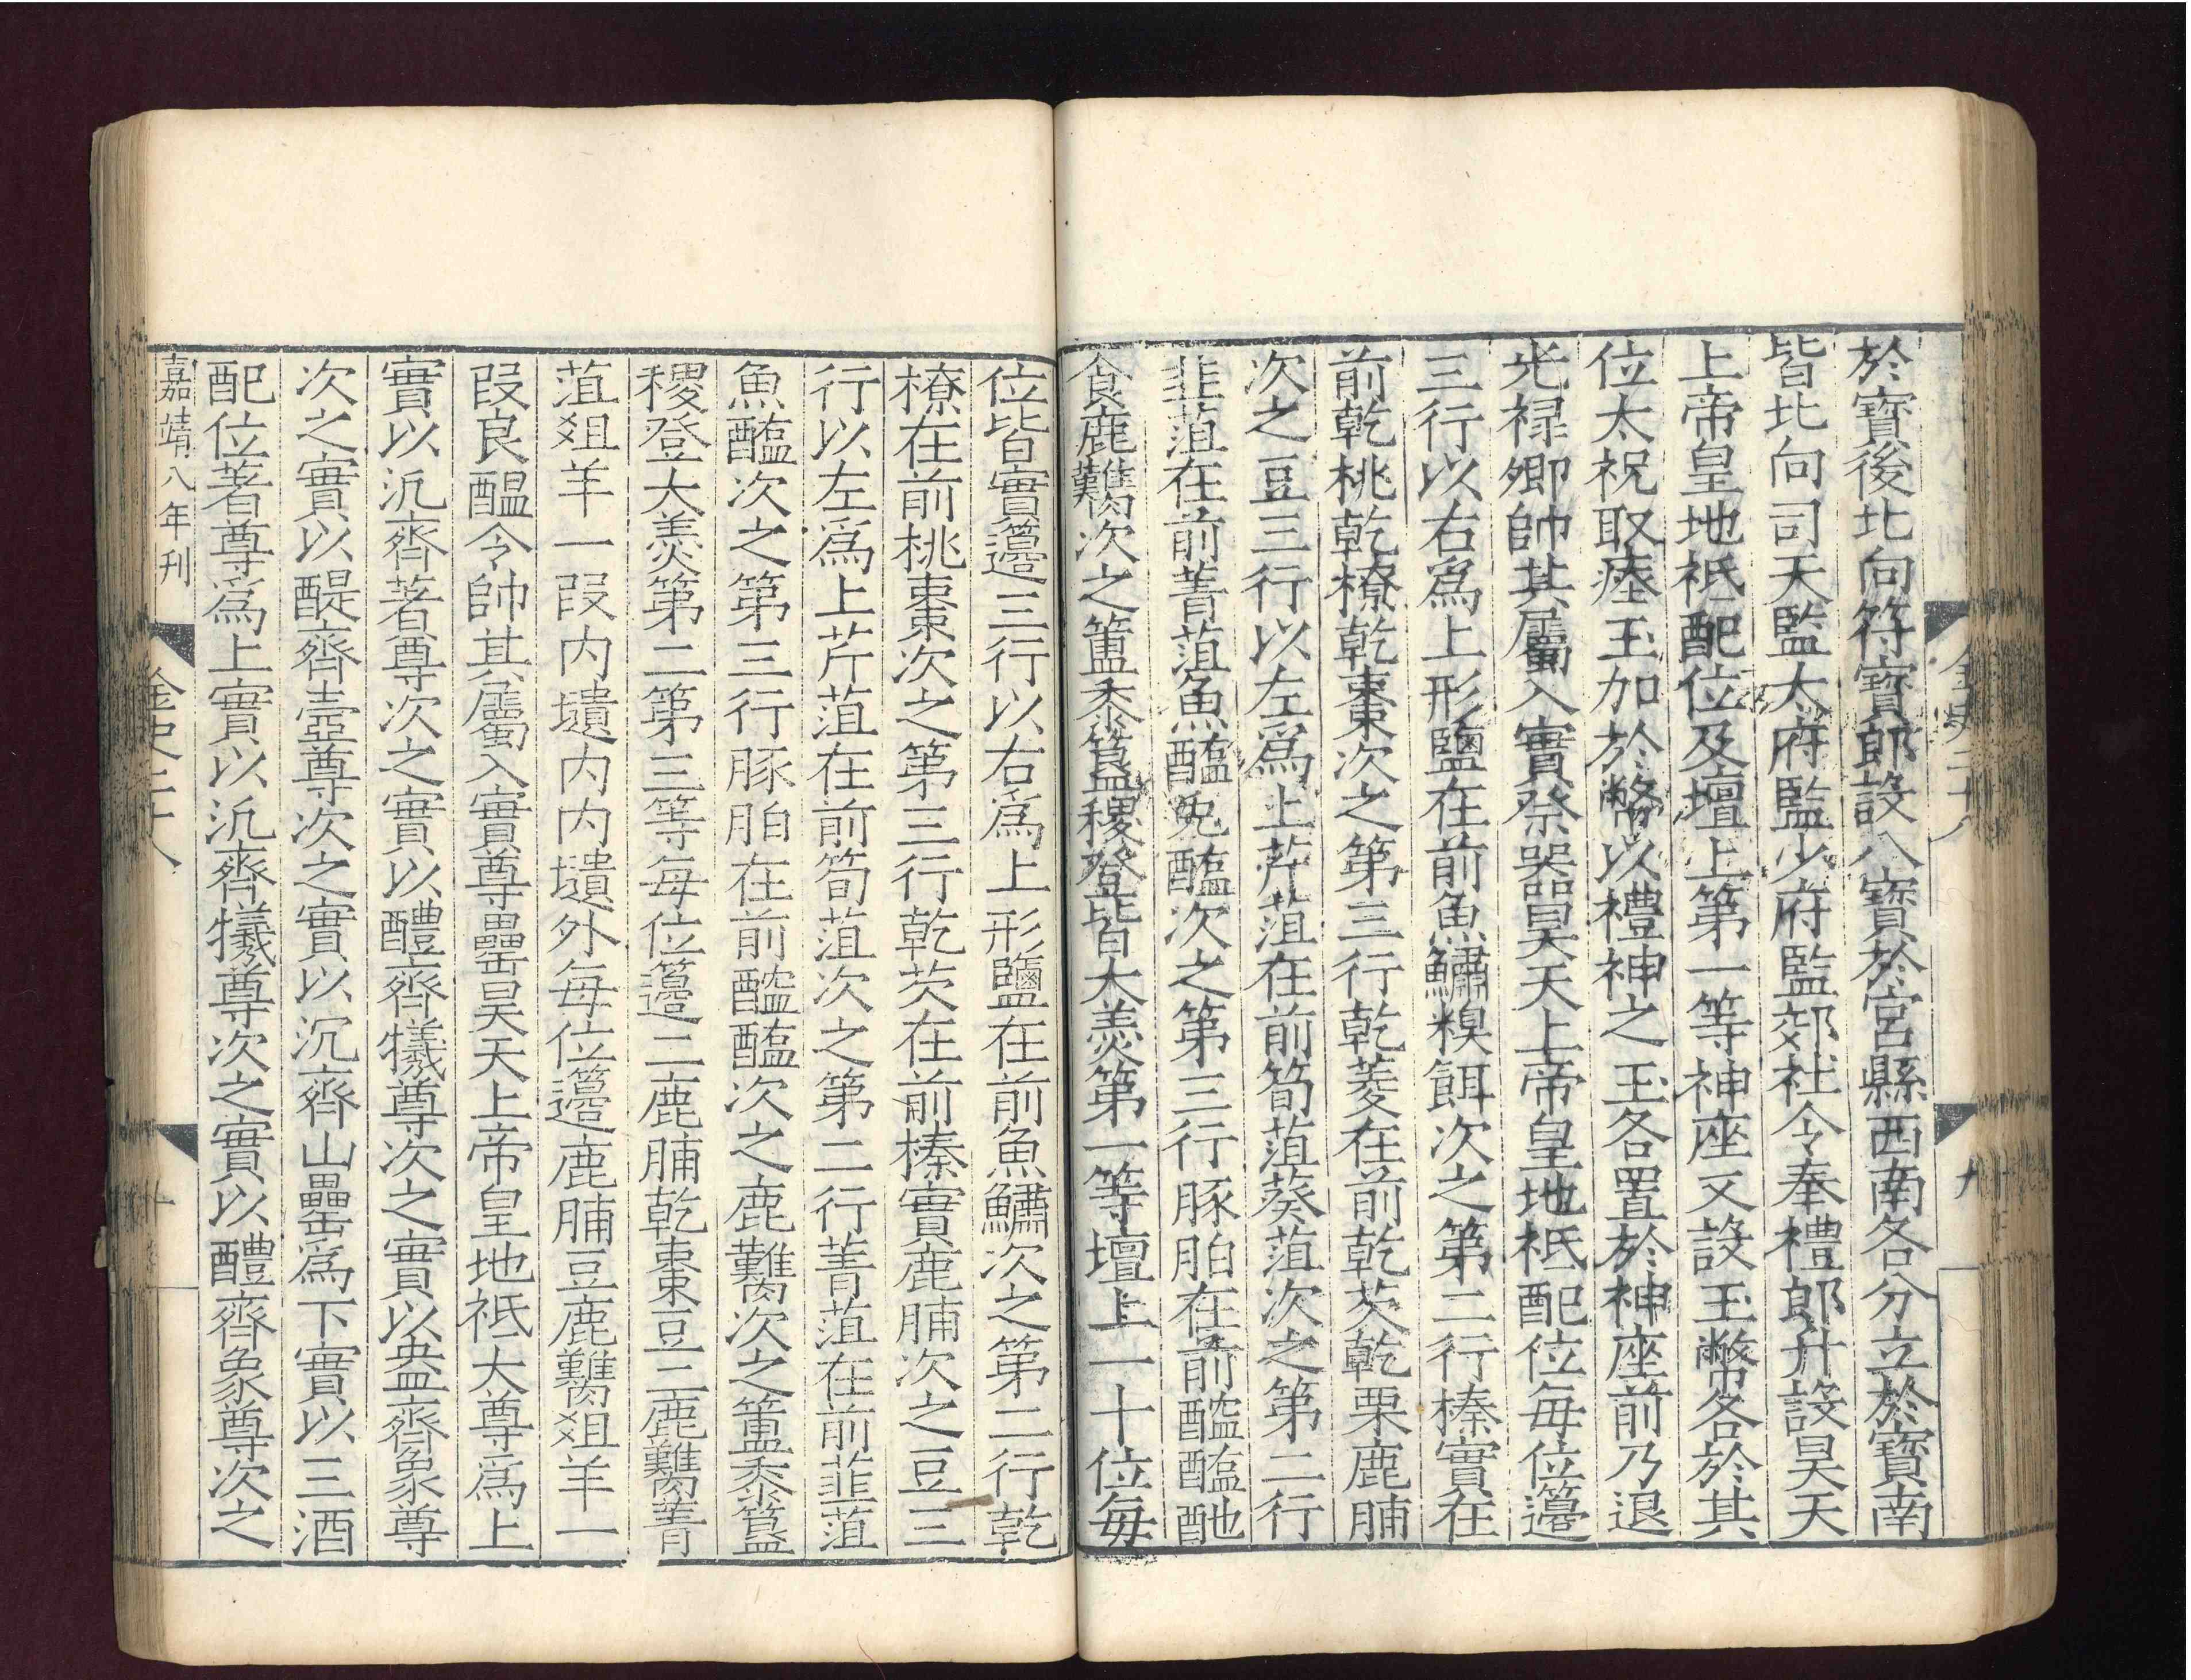 於寳後北向符寳郎設八寳於宮縣西南各分立於寳南
皆北向司天監太府監少府監郊社令奉禮郎升設昊天
上帝皇地祗配位及壇上第一等神座又設玉幣各於其
位太祝取瘞玉加於幣以禮神之玉各置於神座前乃退
光禄卿帥其屬入實祭器昊天上帝皇地祗配位毎位籩
三行以右爲上形鹽在前魚鱐糗餌次之第二行榛實在
前乾桃乾橑乾棗次之第三行乾菱在前乾芡乾栗鹿脯
次之豆三行以左爲上芹菹在前筍菹葵菹次之第二行
韭菹在前菁菹魚醢兎醢次之第三行豚胉在前醓醢酏
食鹿臡次之簠黍簋稷登皆大羮第一等壇上一十位毎
位皆實籩三行以右爲上形鹽在前魚鱐次之第二行乾
橑在前桃棗次之第三行乾芡在前榛實鹿脯次之豆三
行以左爲上芹菹在前筍菹次之第二行菁菹在前韭菹
魚醢次之第三行豚胉在前醓醢次之鹿臡次之簠黍簋
稷登大羮第二第三等每位籩二鹿脯乾棗豆二鹿臡菁
菹俎羊一段内壝内内壝外每位籩鹿脯豆鹿臡俎羊一
段良醖令帥其屬入實尊罍昊天上帝皇地祗大尊爲上
實以汎齊著尊次之實以醴齊犧尊次之實以盎齊象尊
次之實以醍齊壺尊次之實以沉齊山罍爲下實以三酒
配位著尊爲上實以汎齊犧尊次之實以醴齊象尊次之
嘉靖八年刊
金史二十八
十
九